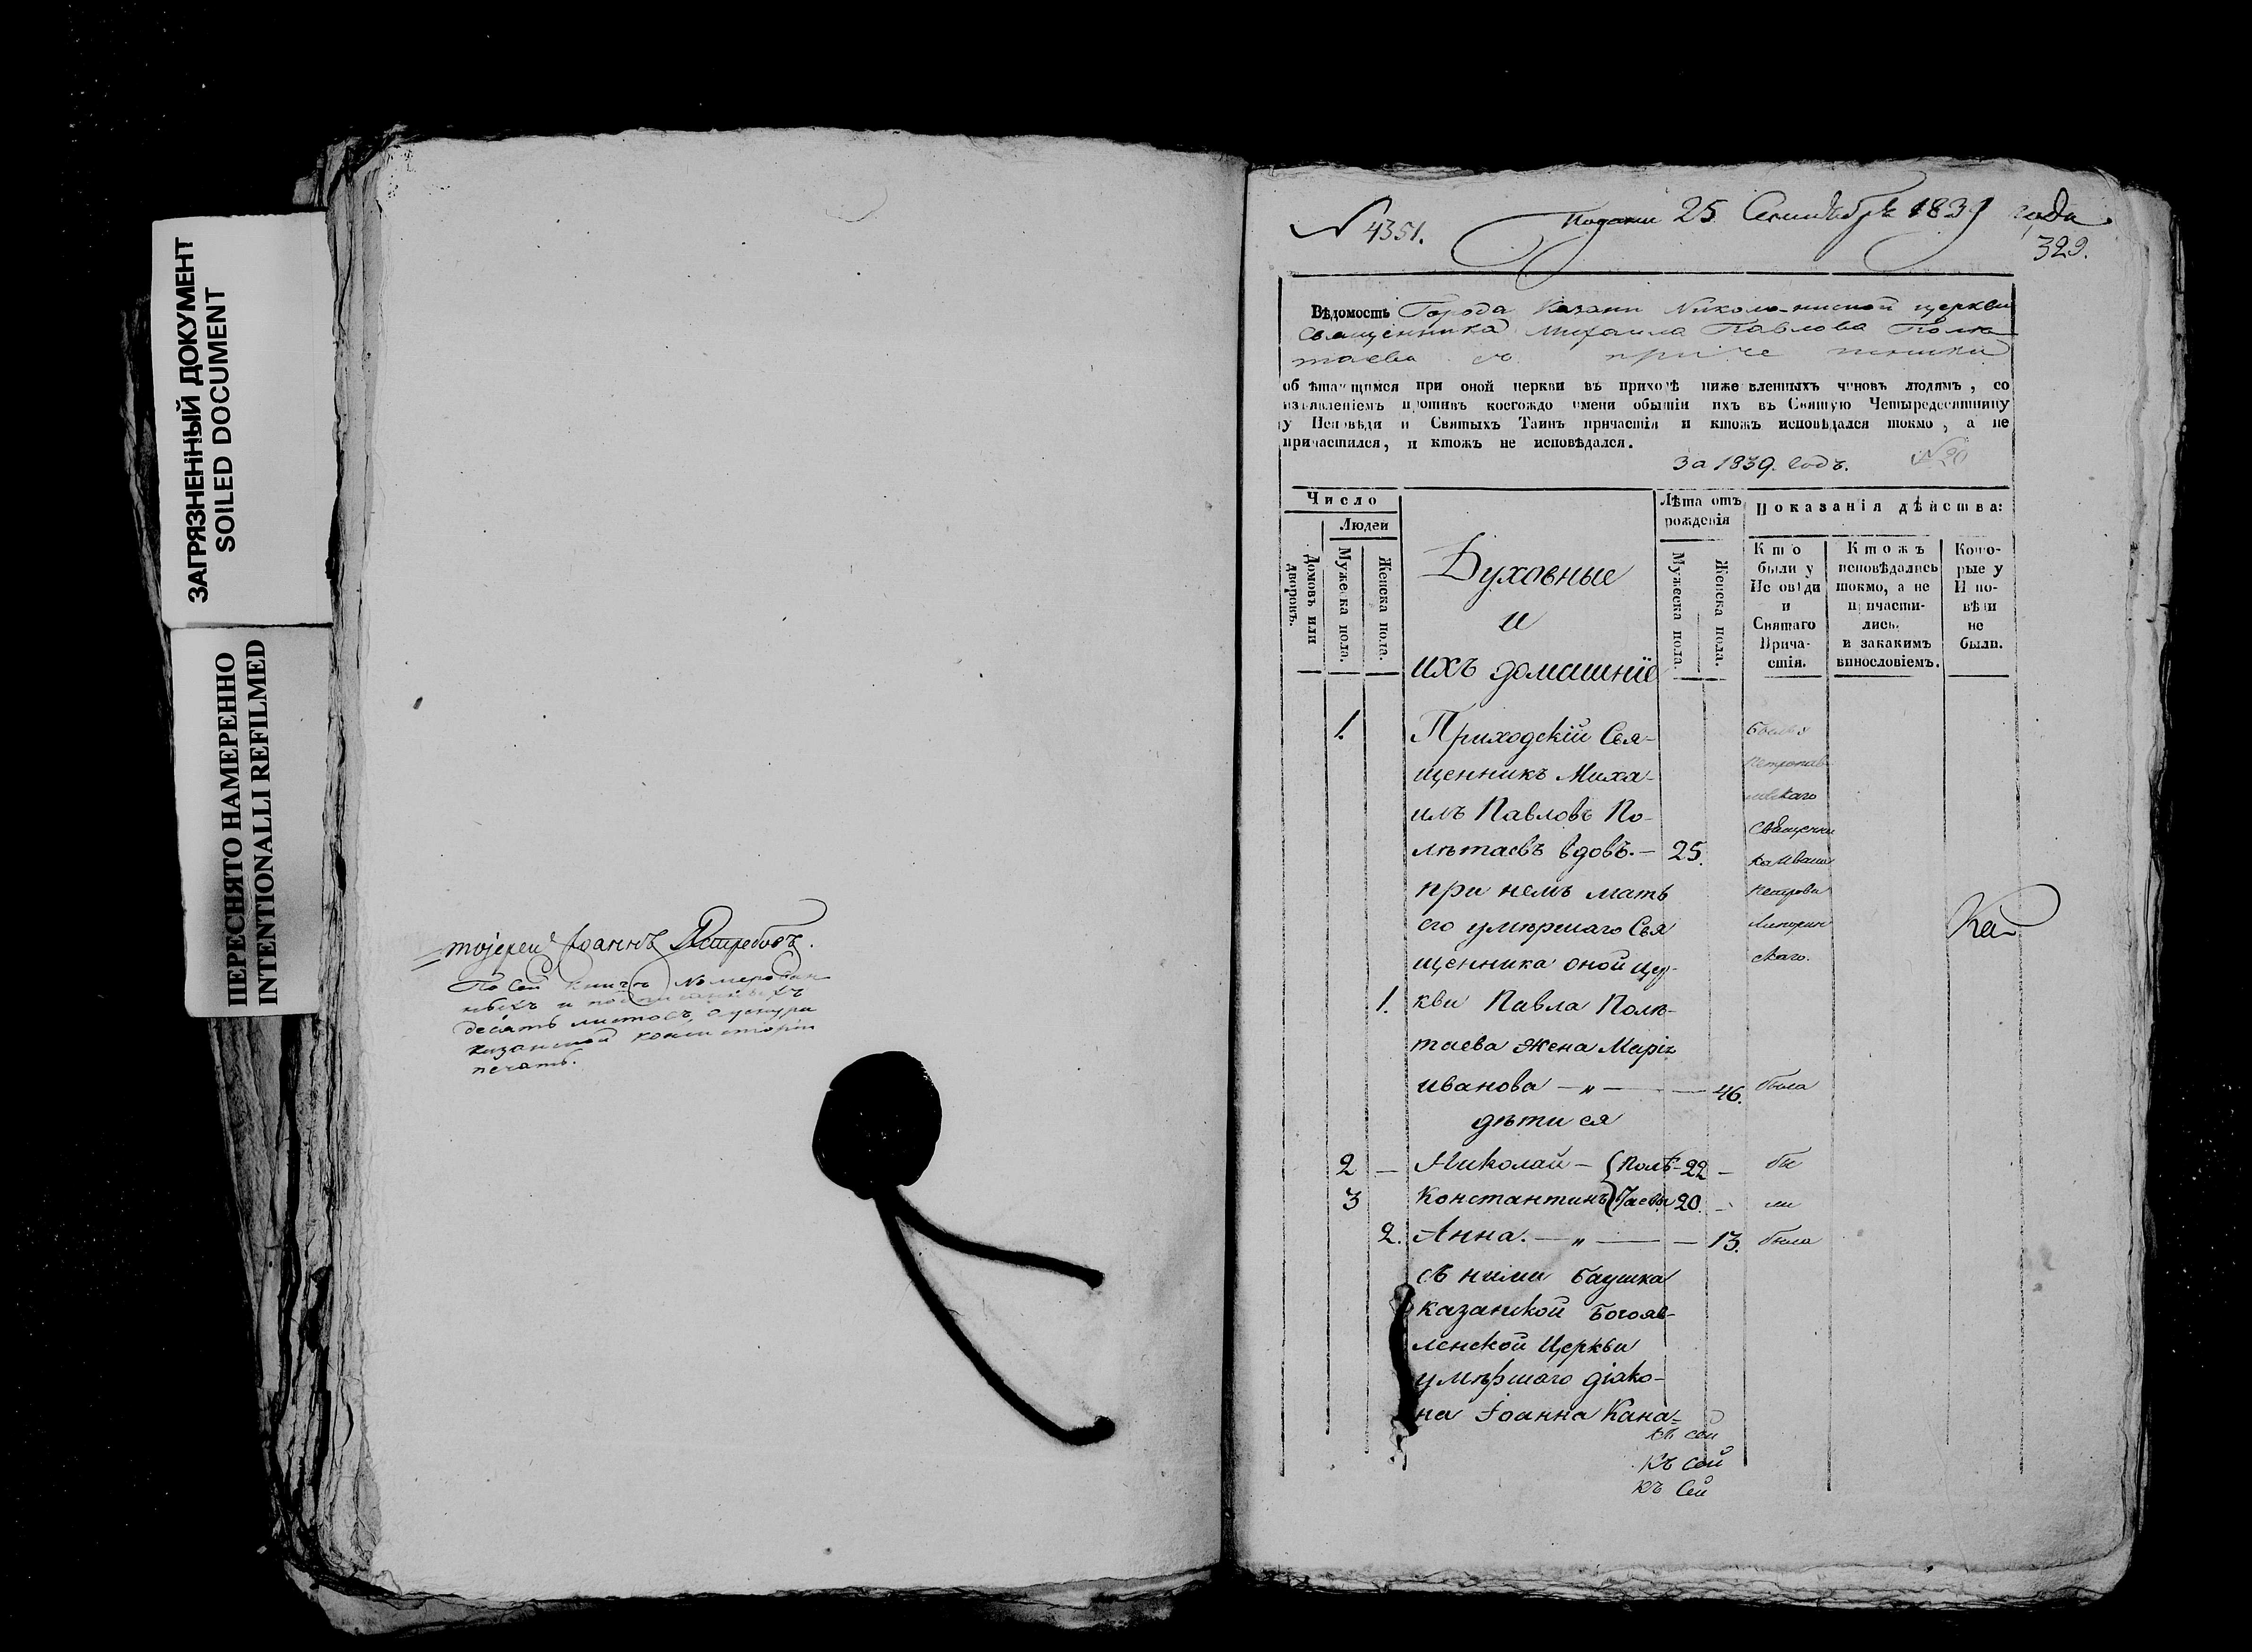 ЗАГРЯЗНЕННЫЙ ДОКУМЕНТ
SOILED DOCUMENT
ПЕРЕСНЯТО НАМЕРЕННО
INTENTIONALLI REFILMED
тоіерей Іоаннъ Ястребовъ.
По сей книгѣ номерован
ныхъ и
десять листовъ,
казанской консисторіи
печать.
N 4351.
Подана 25 Сентября 1839 года
329.
Вѣдомость Города Казани Николо-нисской церкви
священника Михаила Павлова Полѣ
таева съ причетники
обрѣтающимся при оной церкви въ приходѣ нижеявленныхъ чиновъ людямъ, со
изъявленіемъ противъ коегождо имени бытіи ихъ въ Святую Четыредесятницу
у Исповѣди и Святыхъ Таинъ причастія и ктожъ исповѣдался токмо, а не
причастился, и ктожъ не исповѣдался.
За 1839. годъ. №20
Число
Людей
Домовъ или дворовъ.
Мужеска пола.
Женска пола.
Духовные
и
ихъ домашніе
Лѣта отъ рожденія
Мужеска пола.
Женска пола.
Показанія дѣйства:
Кто были у Исповѣди и Святаго Причастія.
Ктожъ исповѣдались токмо, а не причастились. и закакимъ винословіемъ.
Которые у Исповѣди не были.
1. Приходскій Свя- былъ у
щенникъ Миха- Петропав
илъ Павловъ По- ловскаго
лѣтаевъ вдовъ. — 25. священни
при немъ мать ка Ивана
его умѣршаго Свя Петрова
щенника оной цер- скаго.
1. кви Павла Полѣ-
таева жена Марія
иванова — „ — 46. была
дѣти ея
2 — Николай — { Полѣ- 22 — бы
3 Константинъ { таевы 20. — ли
2. Анна. — „ — 13. была
съ ними баушка
казанской Богояв-
ленской Церкви
умѣршаго діако-
на Іоанна Кана-
къ сей
къ сей
къ сей